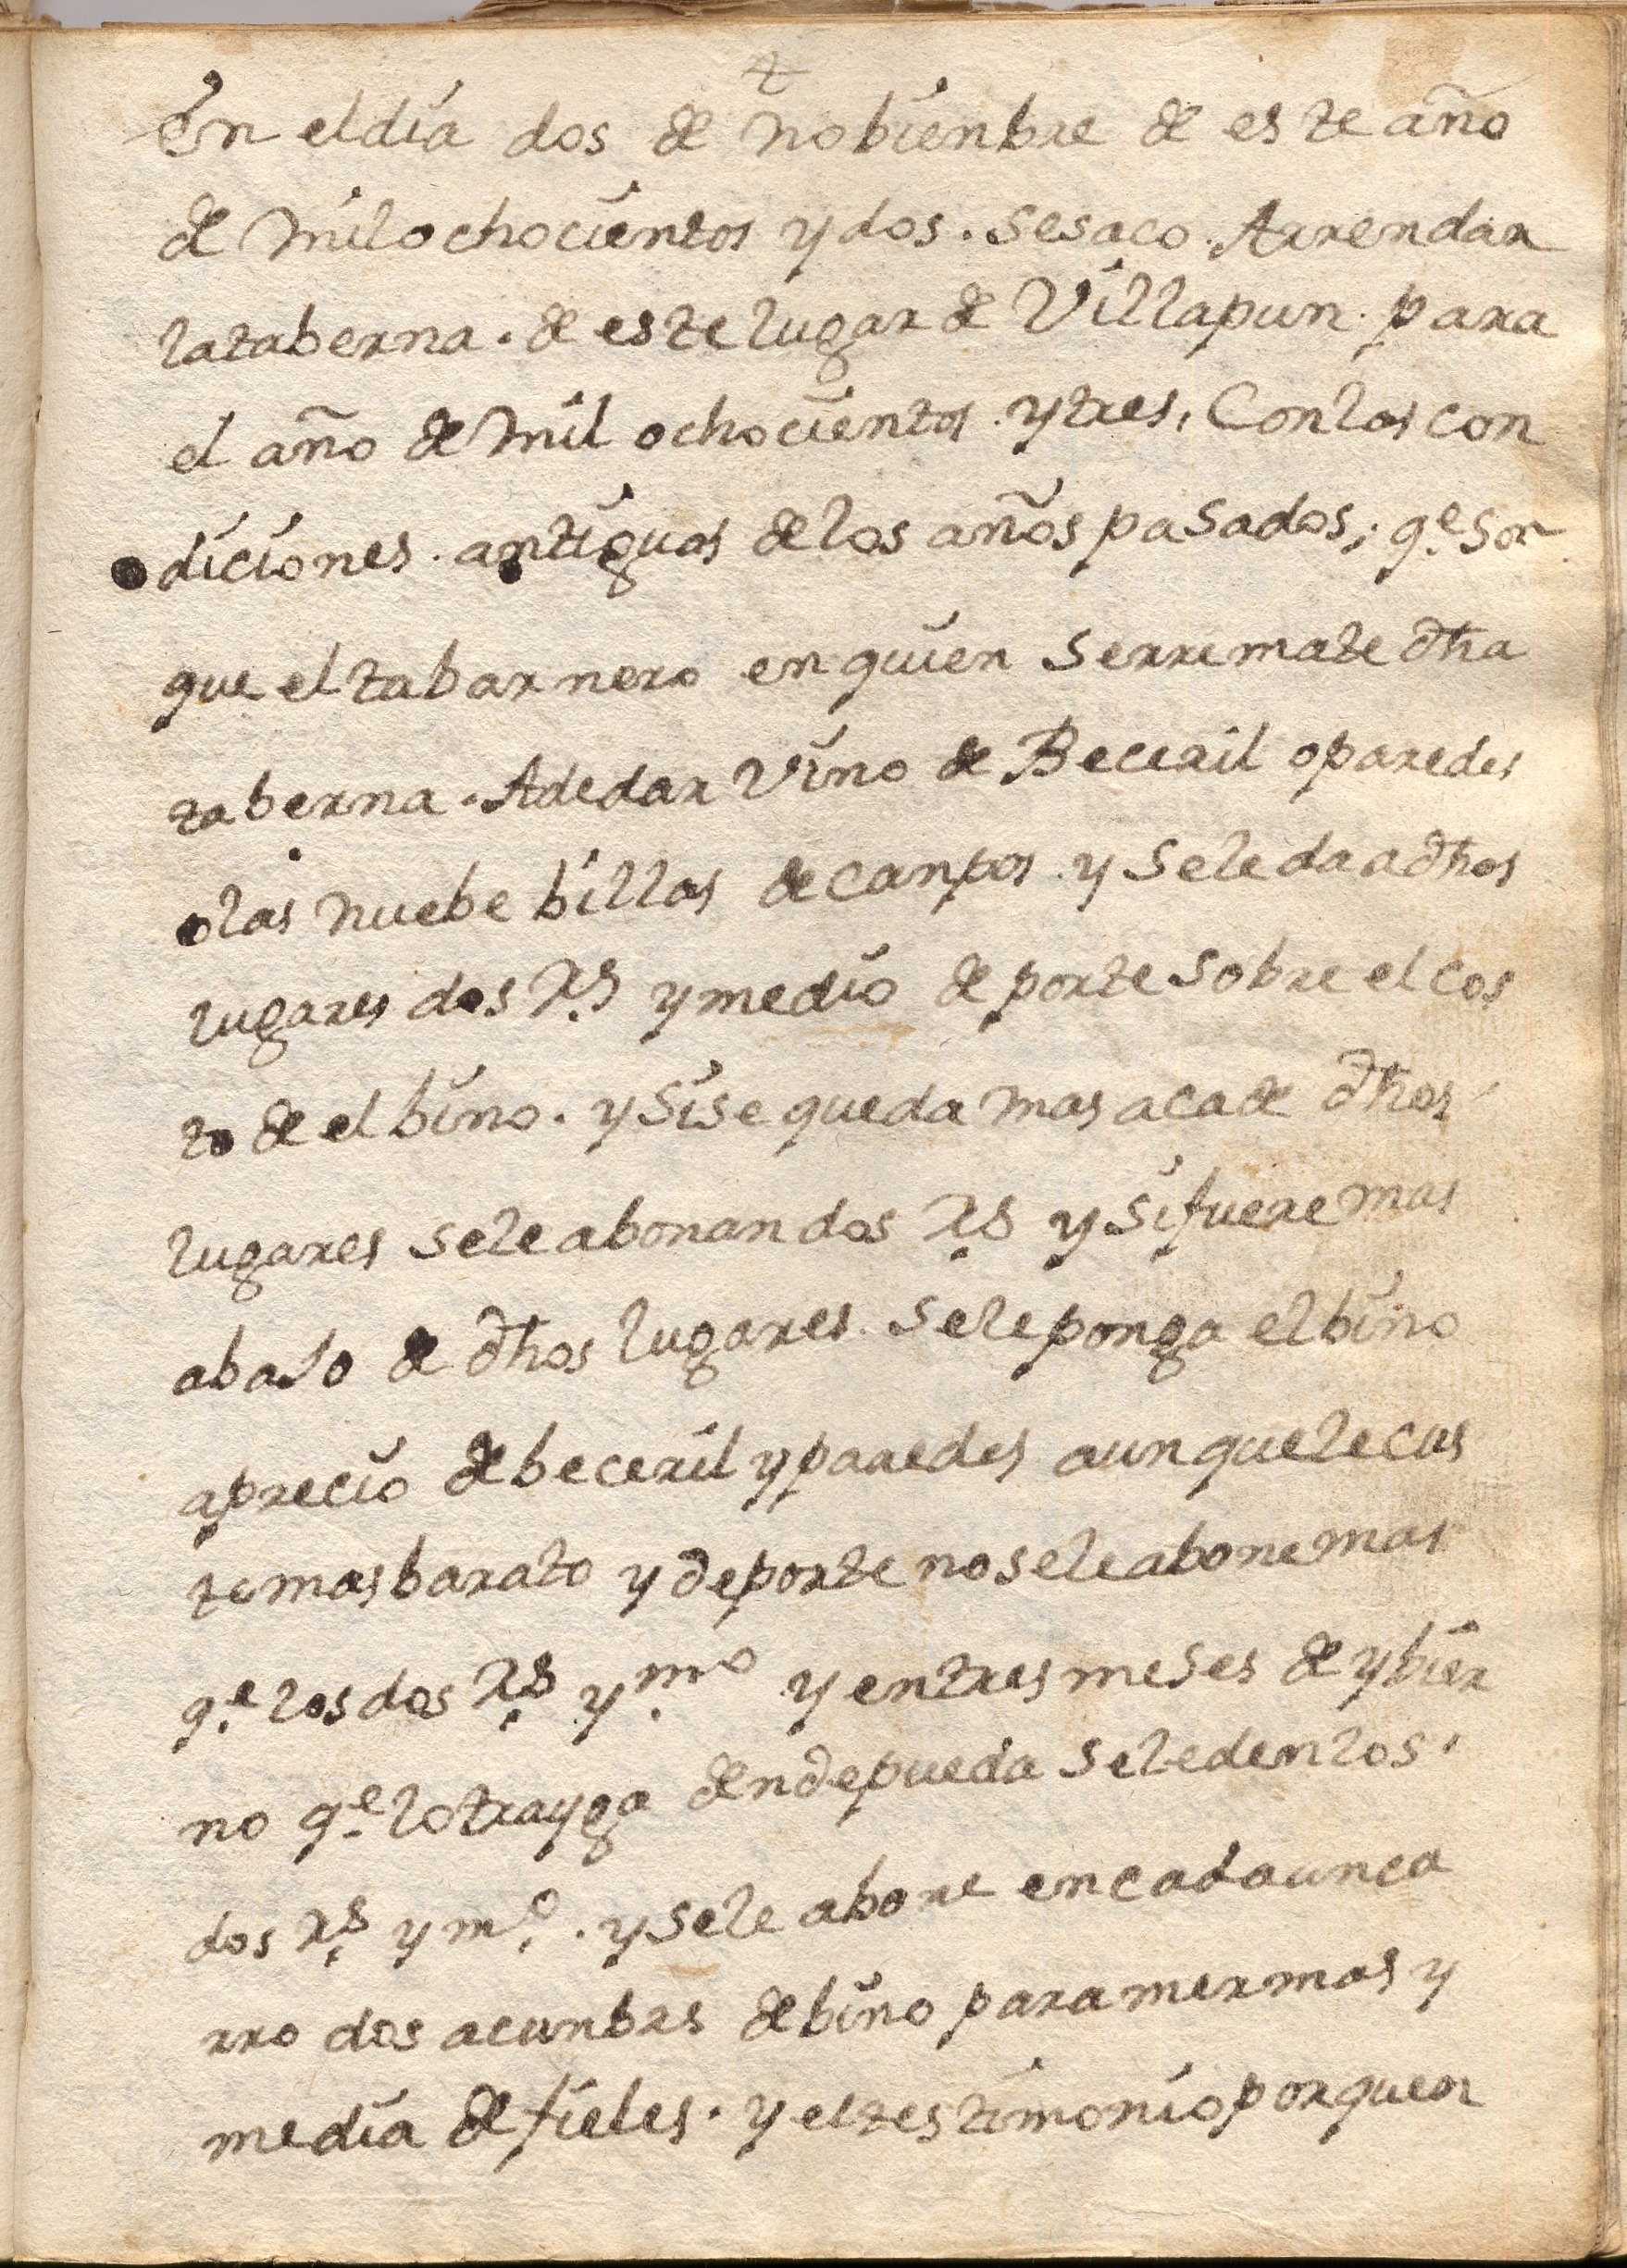 En eldia dos de nobienbre de este año
de mil ochocientos y dos. sesaco. Arrendar
lataberna. de este lugar de Villapun. para
el año de mil ochocientos. ytres, Conlas con
diciones. antiguas delos años pasados; q.e son
que eltabarnero enquien serremate dha
taberna. Adedar vino de Beceril oparedes
olas nuebe billas decanpos. y seledaadhos
lugares dos Rs ymedio de porte sobre elcos
to de el bino. ysise queda mas acade dhos
lugares seleabonan dos Rs y sifuere mas
abaso de dhos lugares. seleponga elbino
aprecio debeceril yparedes aunquelecus
te masbarato y deporte noseleabonemas
q.e losdos Rs ymo yentres meses de ybier
no q.e lotrayga dendepueda seledenlos.
dos Rs y mo. . ysele abone encadaunca
rro dos acunbrs debino paramermas y
media defieles. y eltestimonioporquen